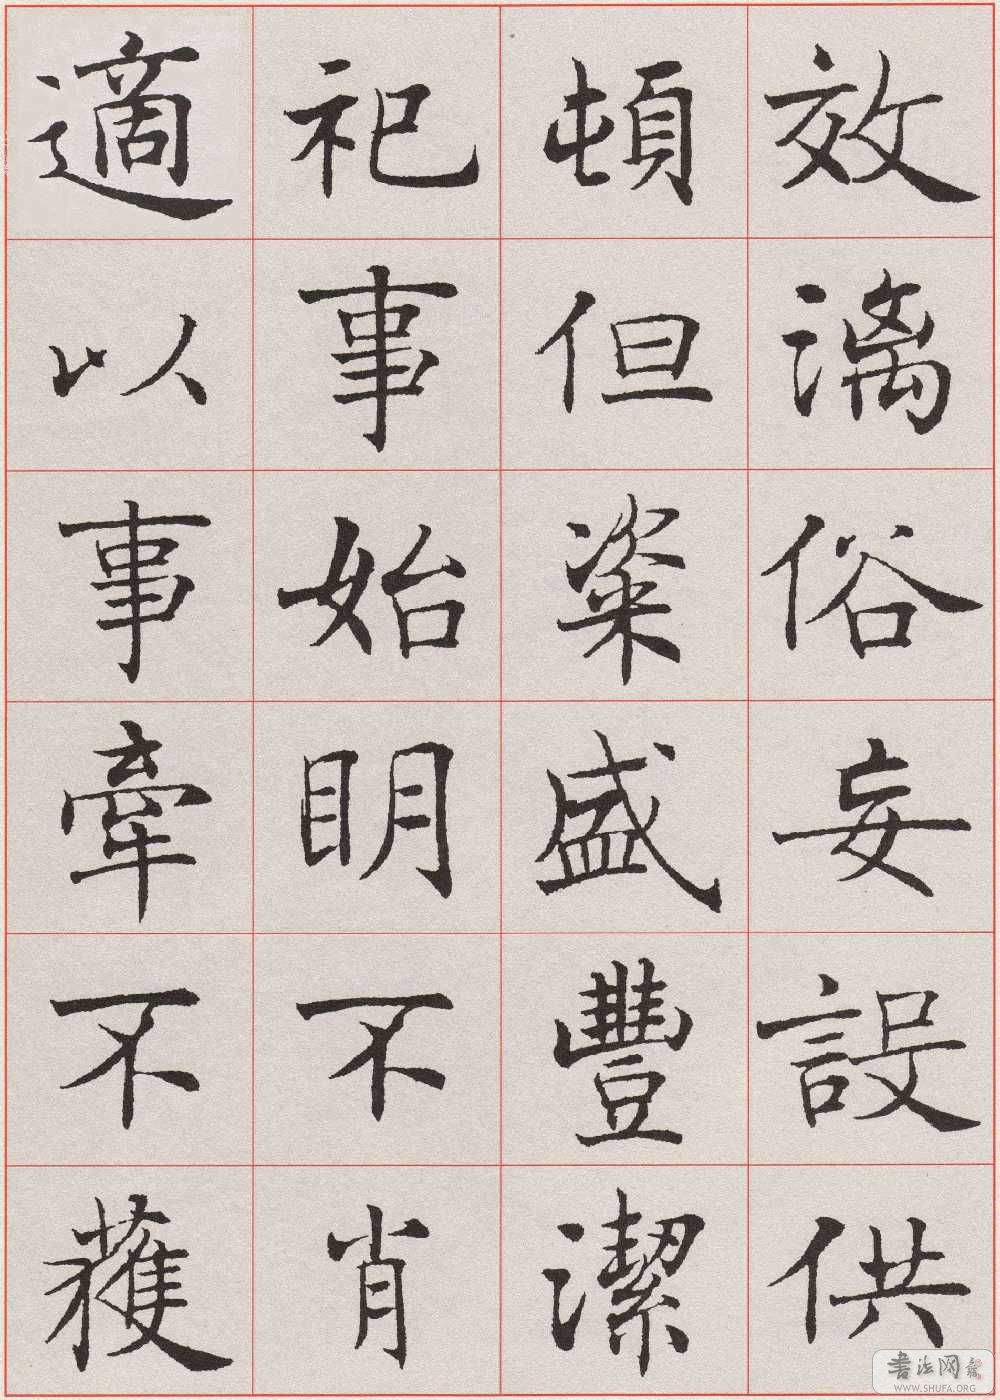 效漓俗妄設供
頓但粢盛豐潔
祀事始眀不肖
適以事牽不獲
書法网
WWW.SHUFA.ORG